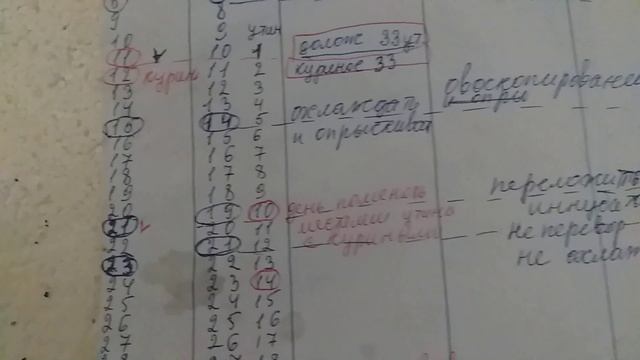 8
9 9 утин
10 10 1 долож 33 ут
11 11 2 куриное 33
12 курин 12 3
13 13 4 охлаждать овоскопирование
14 14 5 и опры
15 15 6 и опрыскиват
16 16 7
17 17 8
18 18 9 переложить
19 19 10 день поменять
20 20 11 местами утина
21 21 12 с куриными не перевор
22 22 13 не охлаж
23 23 14
24 24 15
25 25 16
26 26 17
27